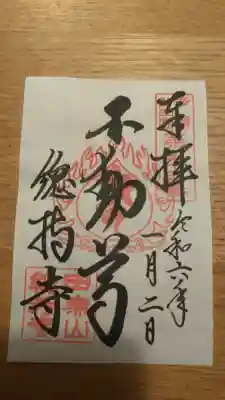 奉拝
令和六年
一月二日
不動尊
総持寺